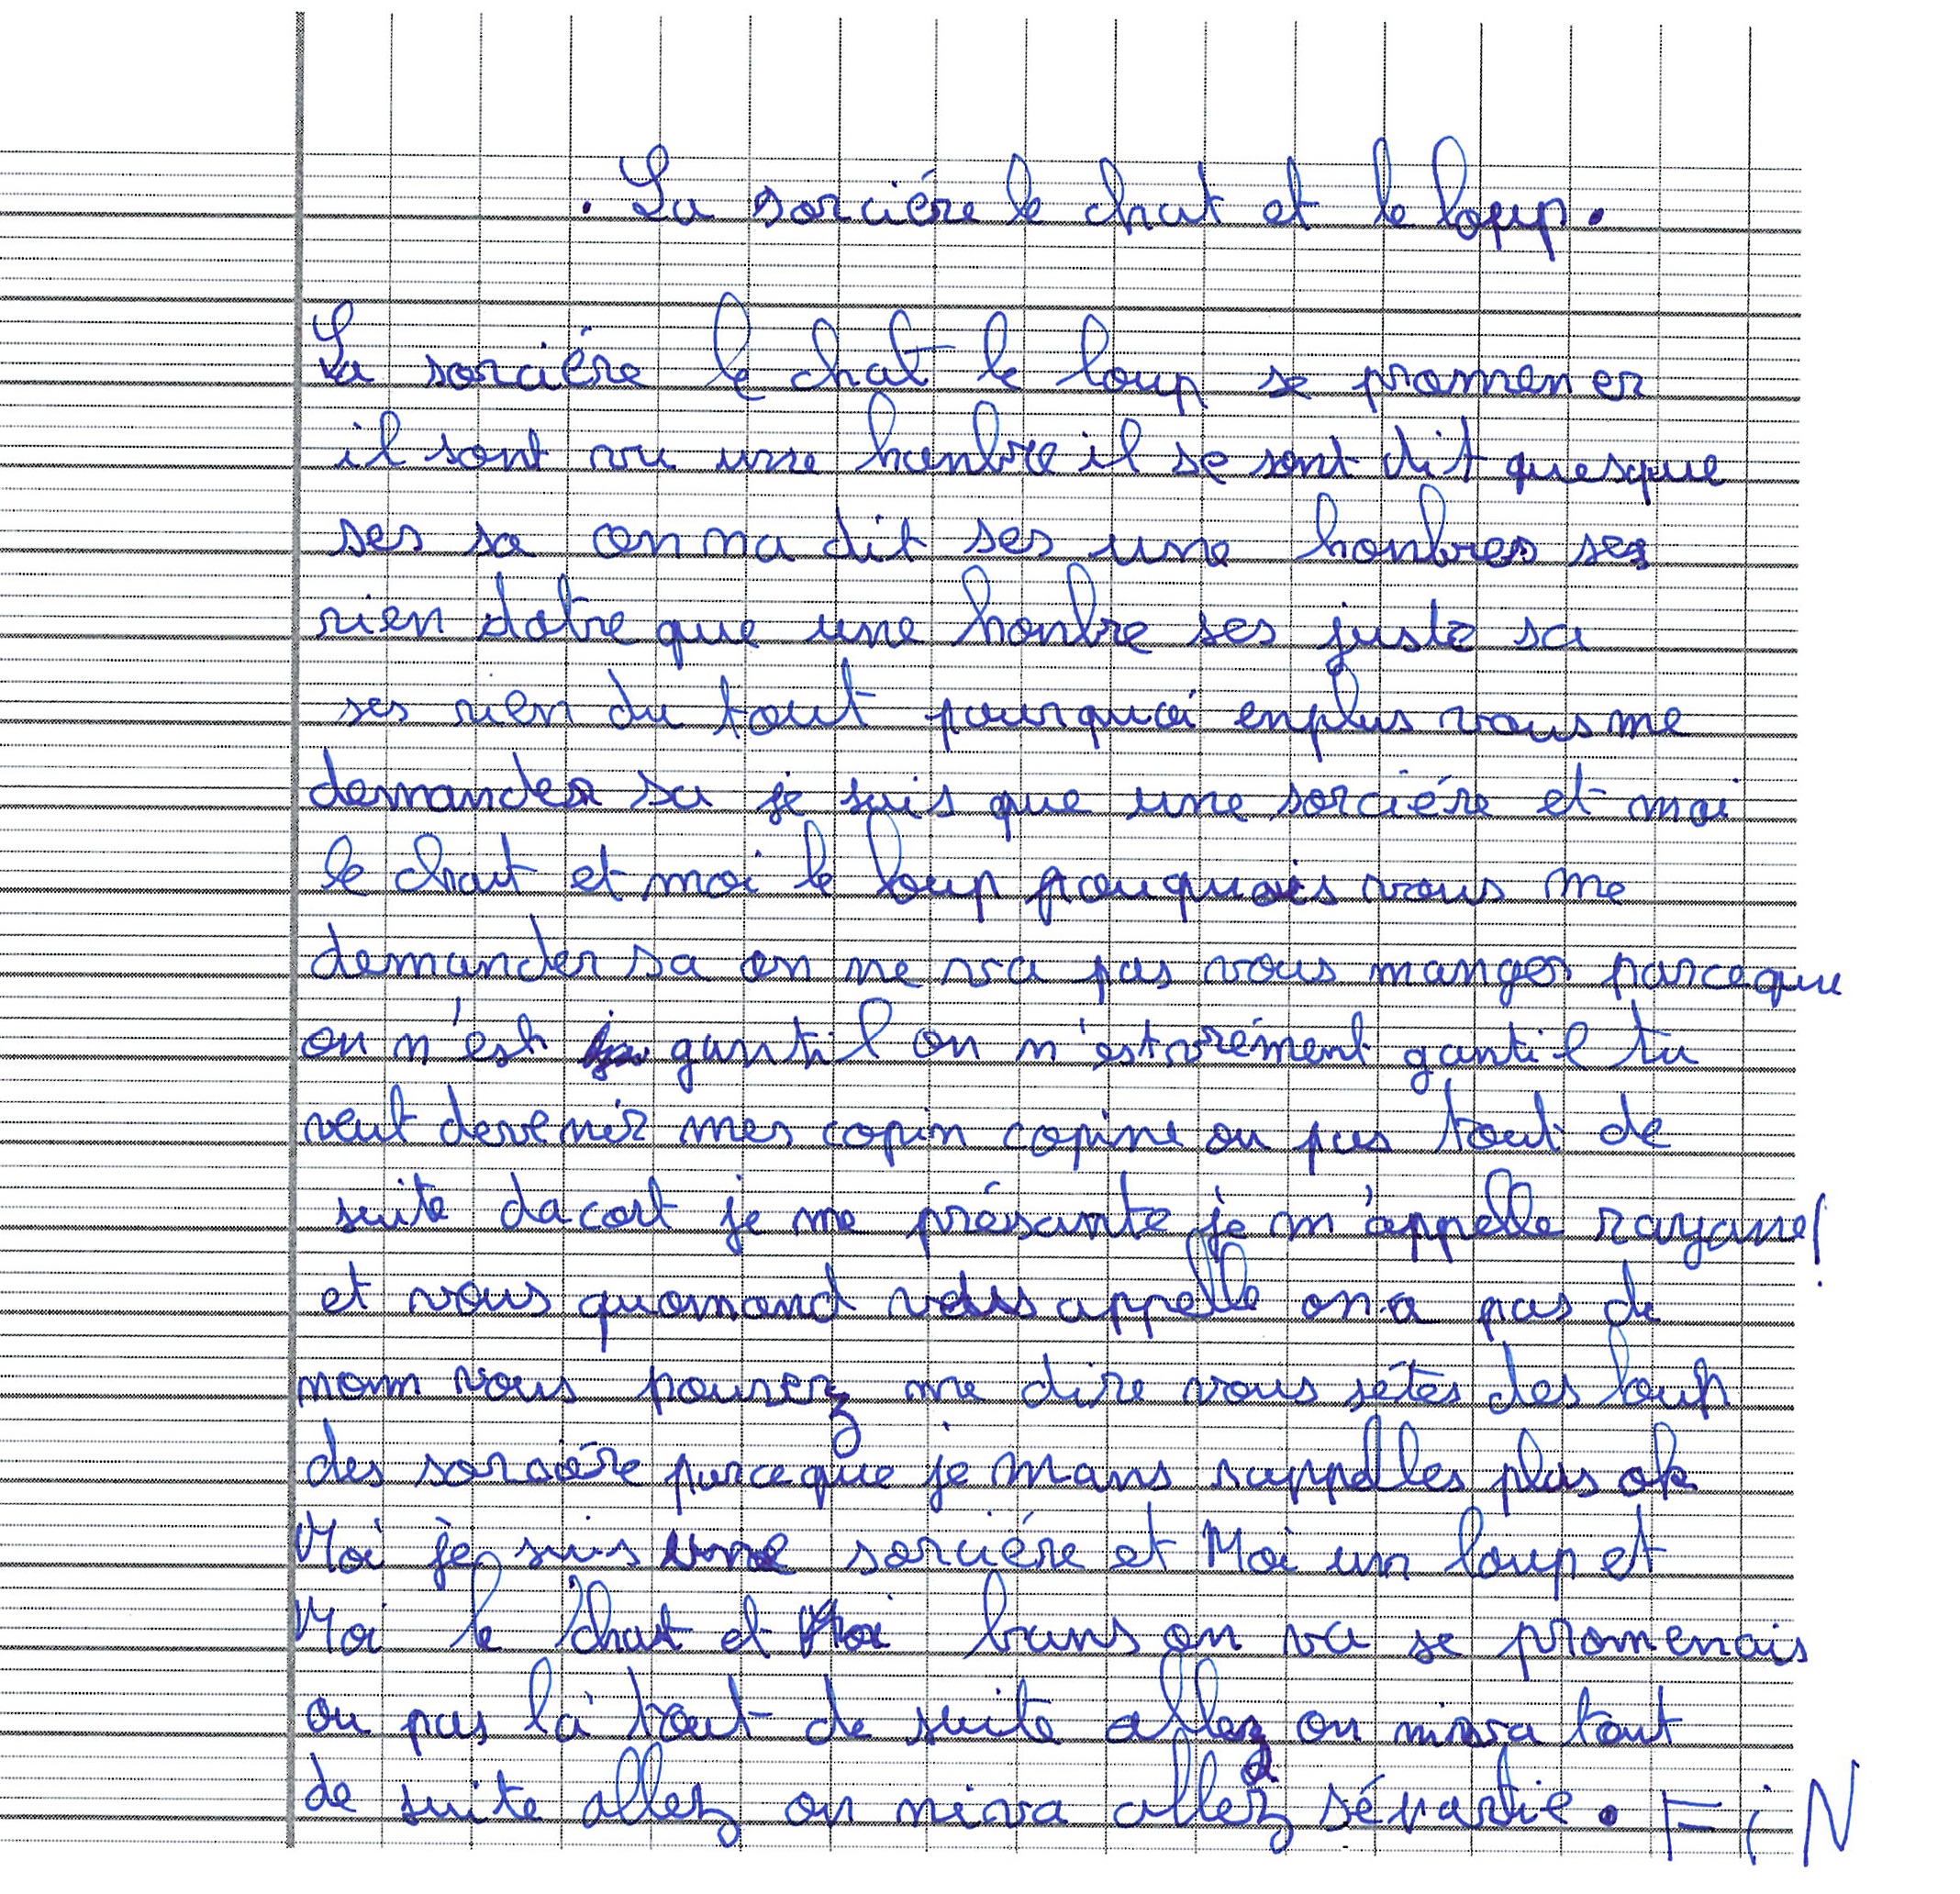 . La sorciére le chat et le loup.
La sorciére le chat le loup se promener
il sont vu une honbre il se sont dit quesque
ses sa on ma dit ses une honbres ses
rien datre que une honbre ses juste sa
ses rien du tout pourquoi enplus vous me
demander sa je suis que une sorciére et moi
le chat et moi le loup pouquois vous me
demander sa on ne va pas vous manger parceque
on n'est gantil on n'est vrément gantil tu
veut devenir mes copin copine ou pas tout de
suite dacort je me présante je m'appelle rayane!
et vous quomand vous appelle on a pas de
nom vous pouvez me dire vous sétes des loup
des sorciére parceque je mans rappelles plus ok
Moi je suis une sorciére et Moi un loup et
Moi le chat et Moi bans on va se promenais
ou pas la tout de suite allez on niva tout
de suite allez on niva allez sépartie. FiN